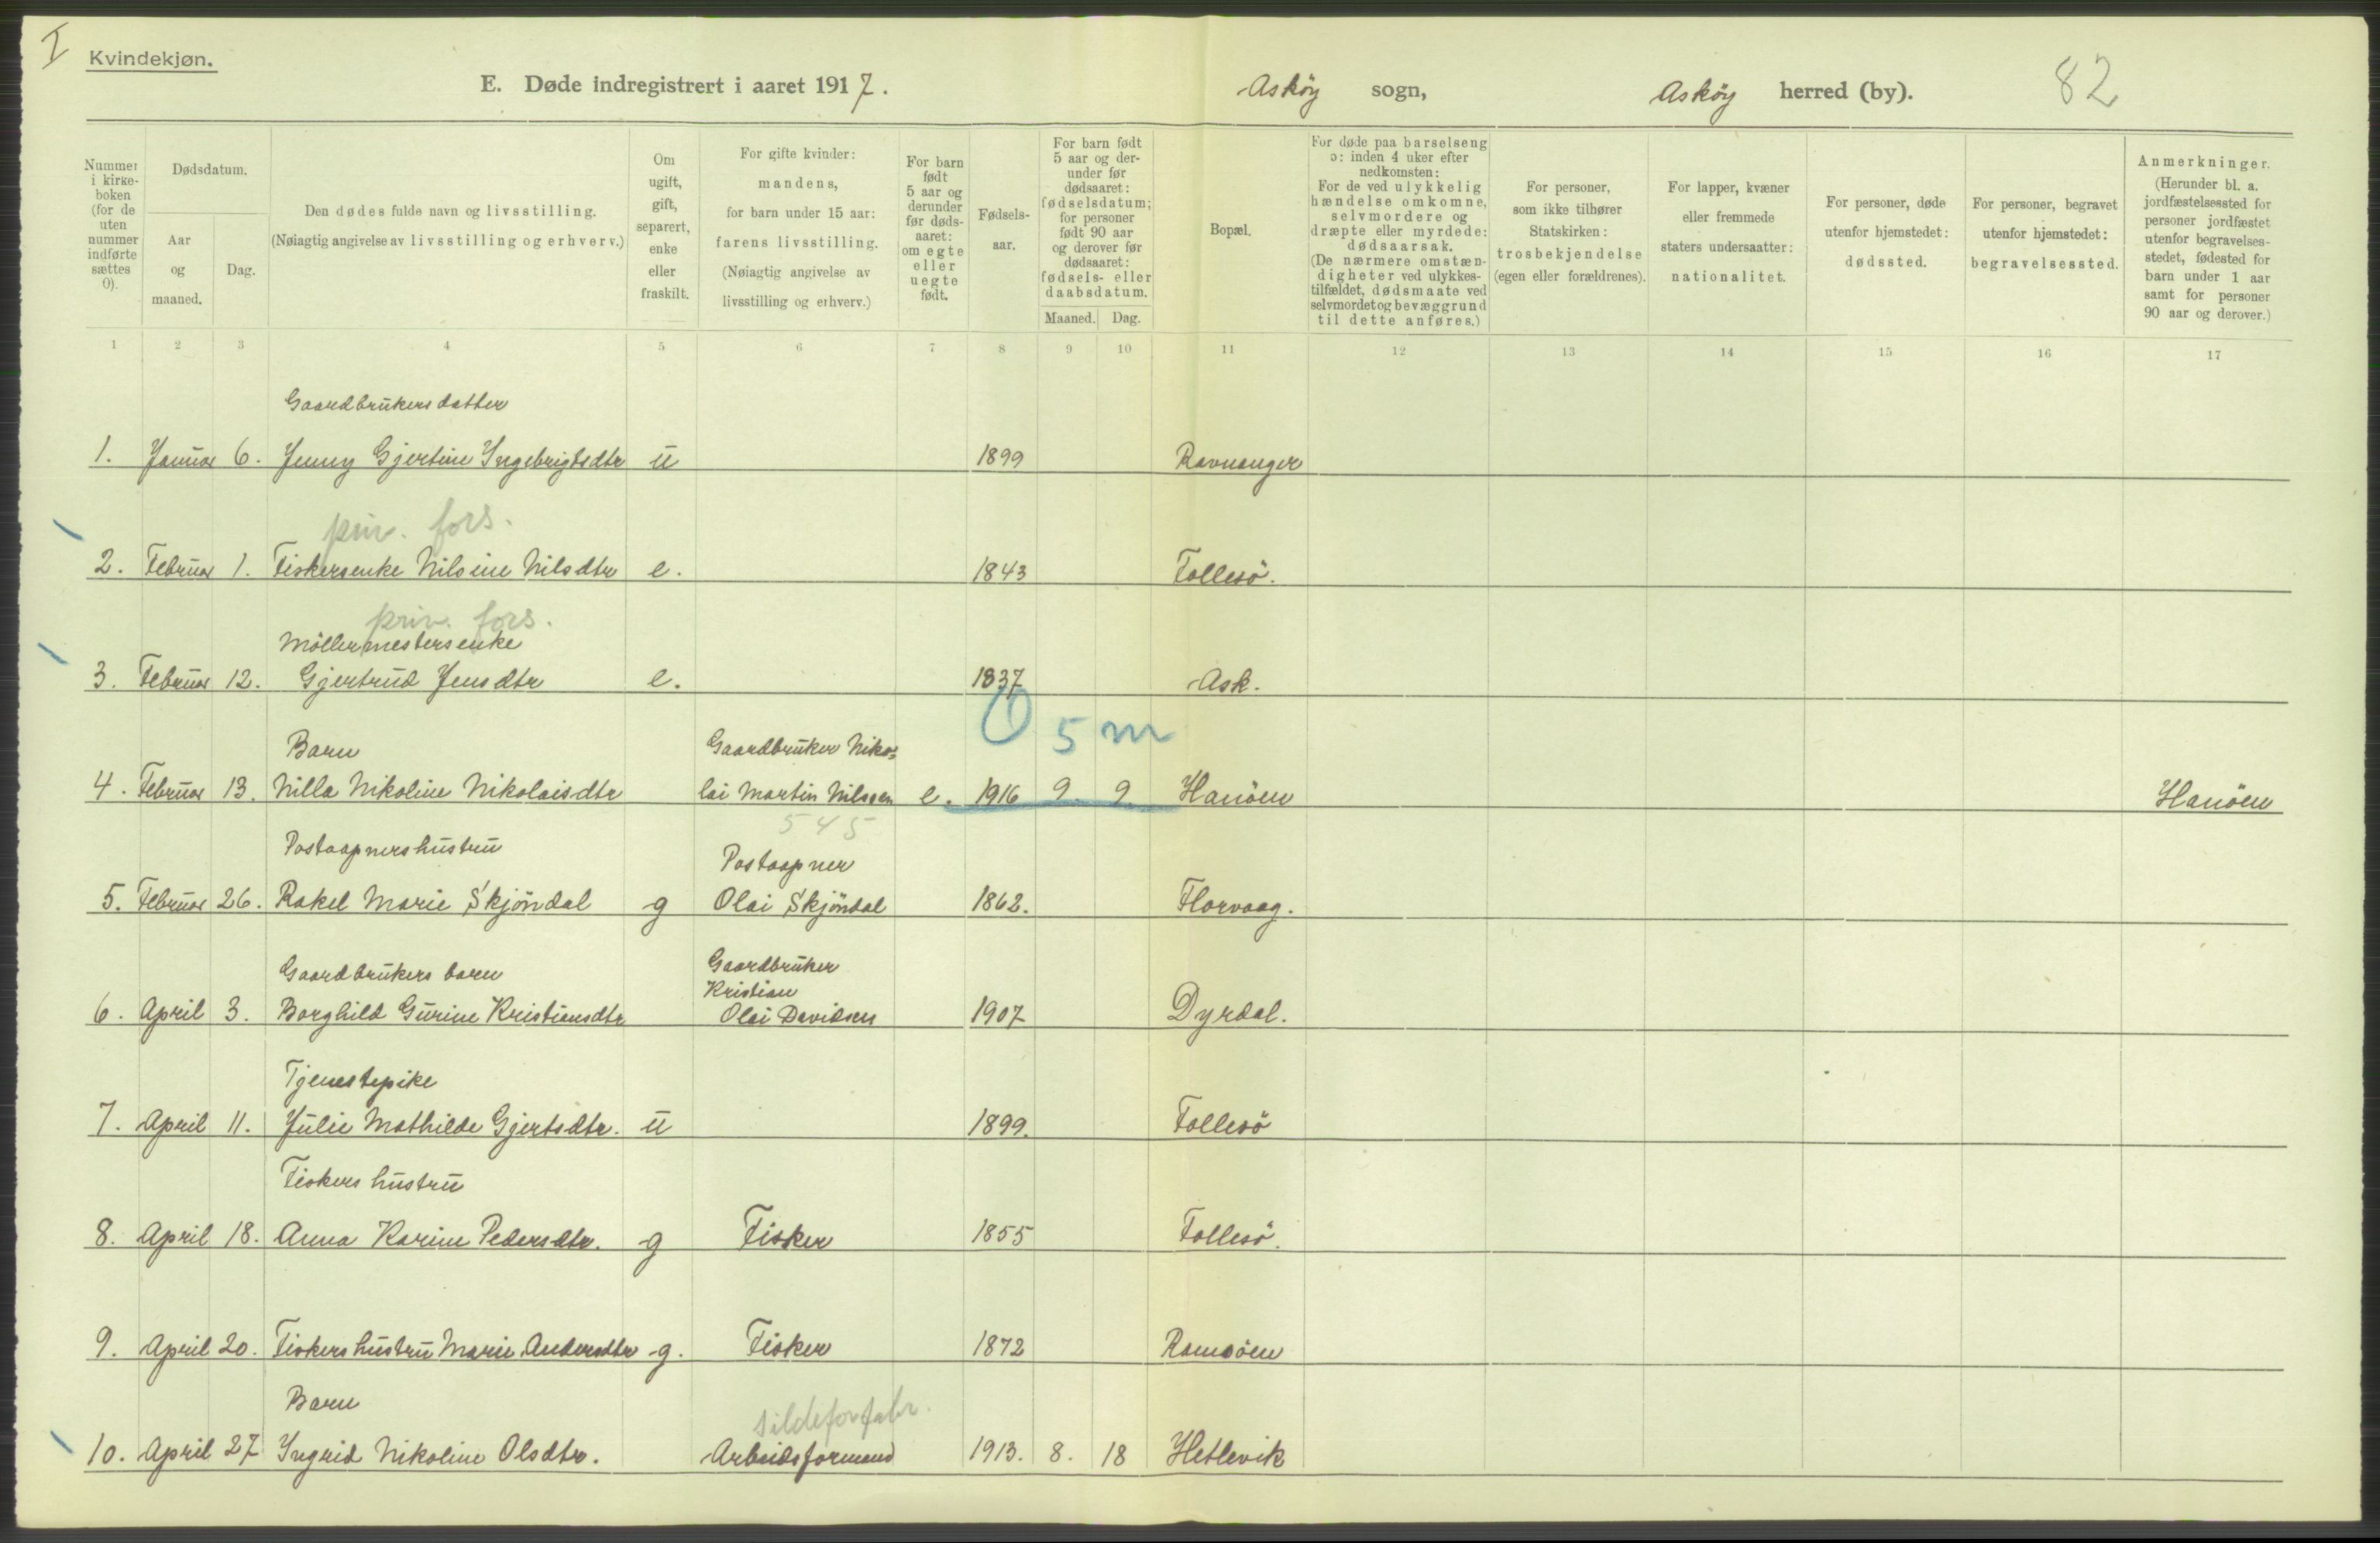 I
Kvindekjøn.
E. Døde indregistrert i aaret 1917.
Asköy sogn,
Asköy herred (by).
82
Nummer i kirke-boken (for de uten nummer indførte sættes 0).
Dødsdatum.
Aar og maaned.
Dag.
Den dødes fulde navn og livsstilling.
(Nøiagtig angivelse av livsstilling og erhverv.)
Om ugift, gift, separert, enke eller fraskilt.
For gifte kvinder: mandens, for barn under 15 aar: farens livsstilling. (Nøiagtig angivelse av livsstilling og erhverv.)
For barn født 5 aar og derunder før døds-aaret: om egte eller uegte født.
Fødsels-aar.
For barn født 5 aar og der-under før dødsaaret: fødselsdatum; for personer født 90 aar og derover før dødsaaret: fødsels- eller daabsdatum.
Maaned. Dag.
Bopæl.
For døde paa barselseng ɔ: inden 4 uker efter nedkomsten: For de ved ulykkelig hændelse omkomne, selvmordere og dræpte eller myrdede: dødsaarsak. (De nærmere omstæn-digheter ved ulykkes-tilfældet, dødsmaate ved selvmordet og bevæggrund til dette anføres.)
For personer, som ikke tilhører Statskirken: trosbekjendelse (egen eller forældrenes).
For lapper, kvæner eller fremmede staters undersaatter: nationalitet.
For personer, døde utenfor hjemstedet: dødssted.
For personer, begravet utenfor hjemstedet: begravelsessted.
Anmerkninger. (Herunder bl. a. jordfæstelsessted for personer jordfæstet utenfor begravelses-stedet, fødested for barn under 1 aar samt for personer 90 aar og derover.)
1 2 3 4 5 6 7 8 9 10 11 12 13 14 15 16 17
Gaardbrukersdatter
1. Januar 6. Jenny Gjertine Ingebrigtsdtr u 1899 Ravnanger
priv. fors.
2. Februar 1. Fiskersenke Nilsine Nilsdtr e. 1843 Follesö.
priv. fors.
Möllermestersenke
3. Februar 12. Gjertrud Jensdtr e. 1837 Ask.
0 5 m
Barn Gaardbruker Niko-
4. Februar 13. Nilla Nikoline Nikolaisdtr lai Martin Nilssen e. 1916 9. 9 Hanöen Hanöen
545
Postaapnershustru Postaapner
5. Februar 26. Rakel Marie Skjöndal g Olai Skjöndal 1862. Florvaag.
Gaardbrukers barn Gaardbruker
Kristian
6. April 3. Borghild Gurine Kristiansdtr Olai Davidsen 1907 Dyrdal.
Tjenestepike
7. April 11. Julie Mathilde Gjertsdtr. u 1899. Follesö
Fiskers hustru
8. April 18. Anna Karine Pedersdtr. g Fisker 1855 Follesö.
9. April 20. Fiskers hustru Marie Andersdtr g. Fisker 1872 Ramsöen
Barn sildeforfabr.
10. April 27 Ingrid Nikoline Olsdtr. Arbeidsformand 1913. 8. 18 Hetlevik